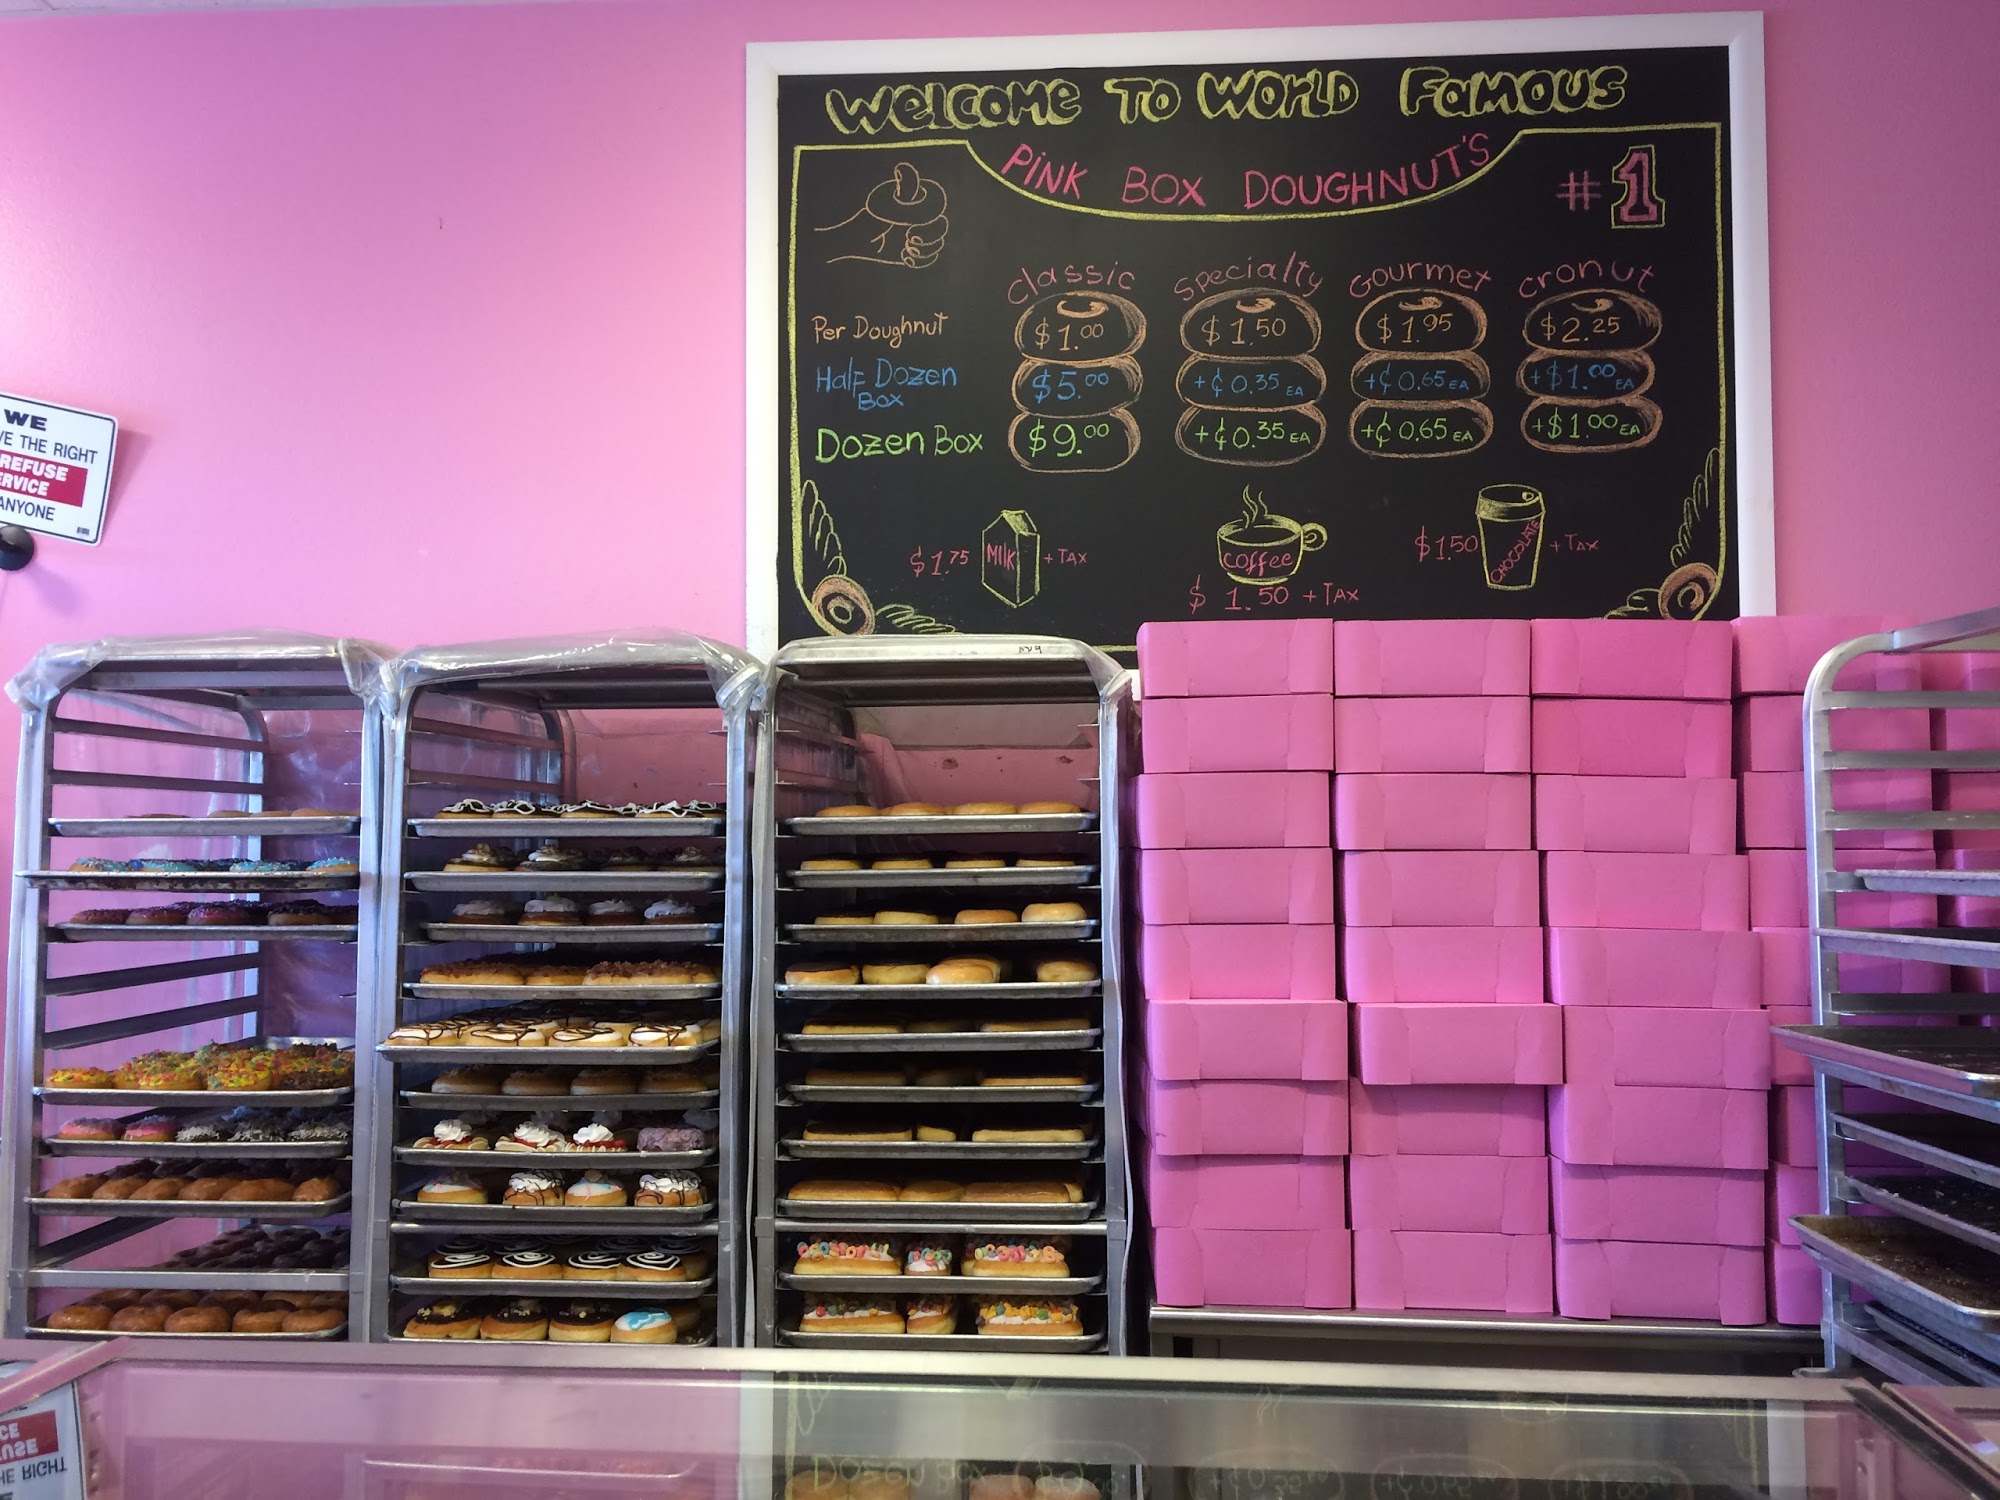 WELCOME TO WORLD FAMOUS
PINK BOX DOUGHNUT'S
#1
Classic Specialty Gourmet Cronut
Per Doughnut $1.00 $1.50 $1.95 $2.25
Half Dozen Box $5.00 +¢0.35 EA +¢0.65 EA +$1.00 EA
Dozen Box $9.00 +¢0.35 EA +¢0.65 EA +$1.00 EA
$1.75 MILK + TAX
Coffee
$1.50 + TAX
$1.50 CHOCOLATE + TAX
WE
VE THE RIGHT
REFUSE
ERVICE
ANYONE